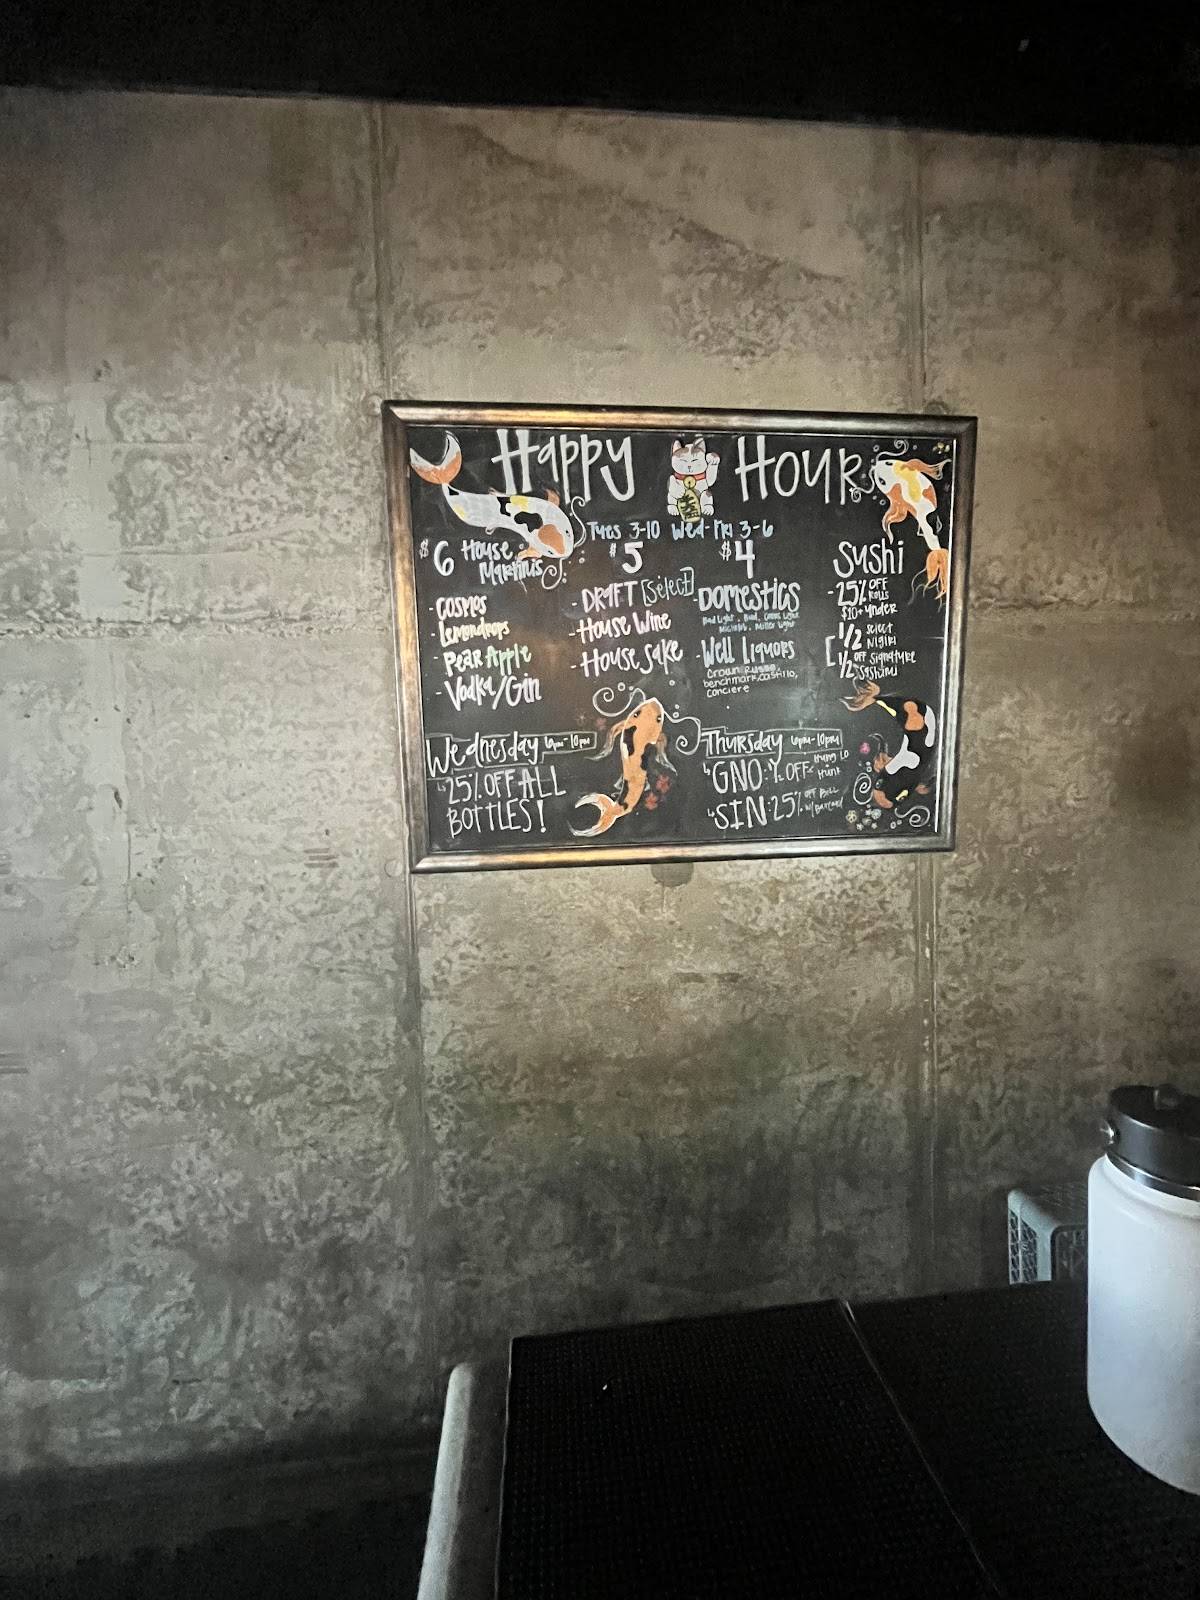 Happy Hour
Tues 3-10 Wed-Fri 3-6
$6 House Martinis
- Cosmos
- Lemondrops
- Pear Apple
- Vodka/Gin
$5
- DRAFT [Select]
- House Wine
- House Sake
$4
- Domestics
Bud Light, Bud, Coors Light
Michelob, Miller Light
- Well Liquors
Crown Russe,
benchmark, Castillo,
Conciere
Sushi
- 25% OFF Rolls
$10 + under
1/2 Select Nigiri
1/2 OFF Signature Sashimi
Wednesday 6pm-10pm
25% OFF ALL
BOTTLES!
Thursday 6pm-10pm
GNO: 1/2 OFF Hung Lo Hunk
SIN: 25% OFF Bill